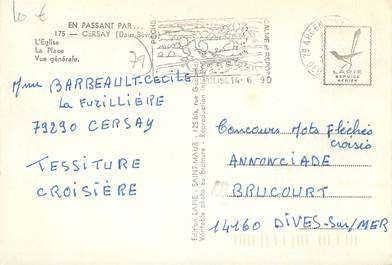 10 €
EN PASSANT PAR...
175 — CERSAY (Deux-Sèvres)
L'Eglise
La Place
Vue générale.
79
14-6-90
LAPIE
SERVICE
AERIEN
Mme BARBEAULT.CECILE
La FUZILLIÈRE
79290 CERSAY
TESSITURE
CROISIÈRE
Edition LAPIE - SAINT-MAUR - 125 bis, rue
Véritable photo au bromure - Reproduction
Concours Mots Fléchés
croisés
ANNONCIADE
BRUCOURT
14160 DIVES-sur/MER